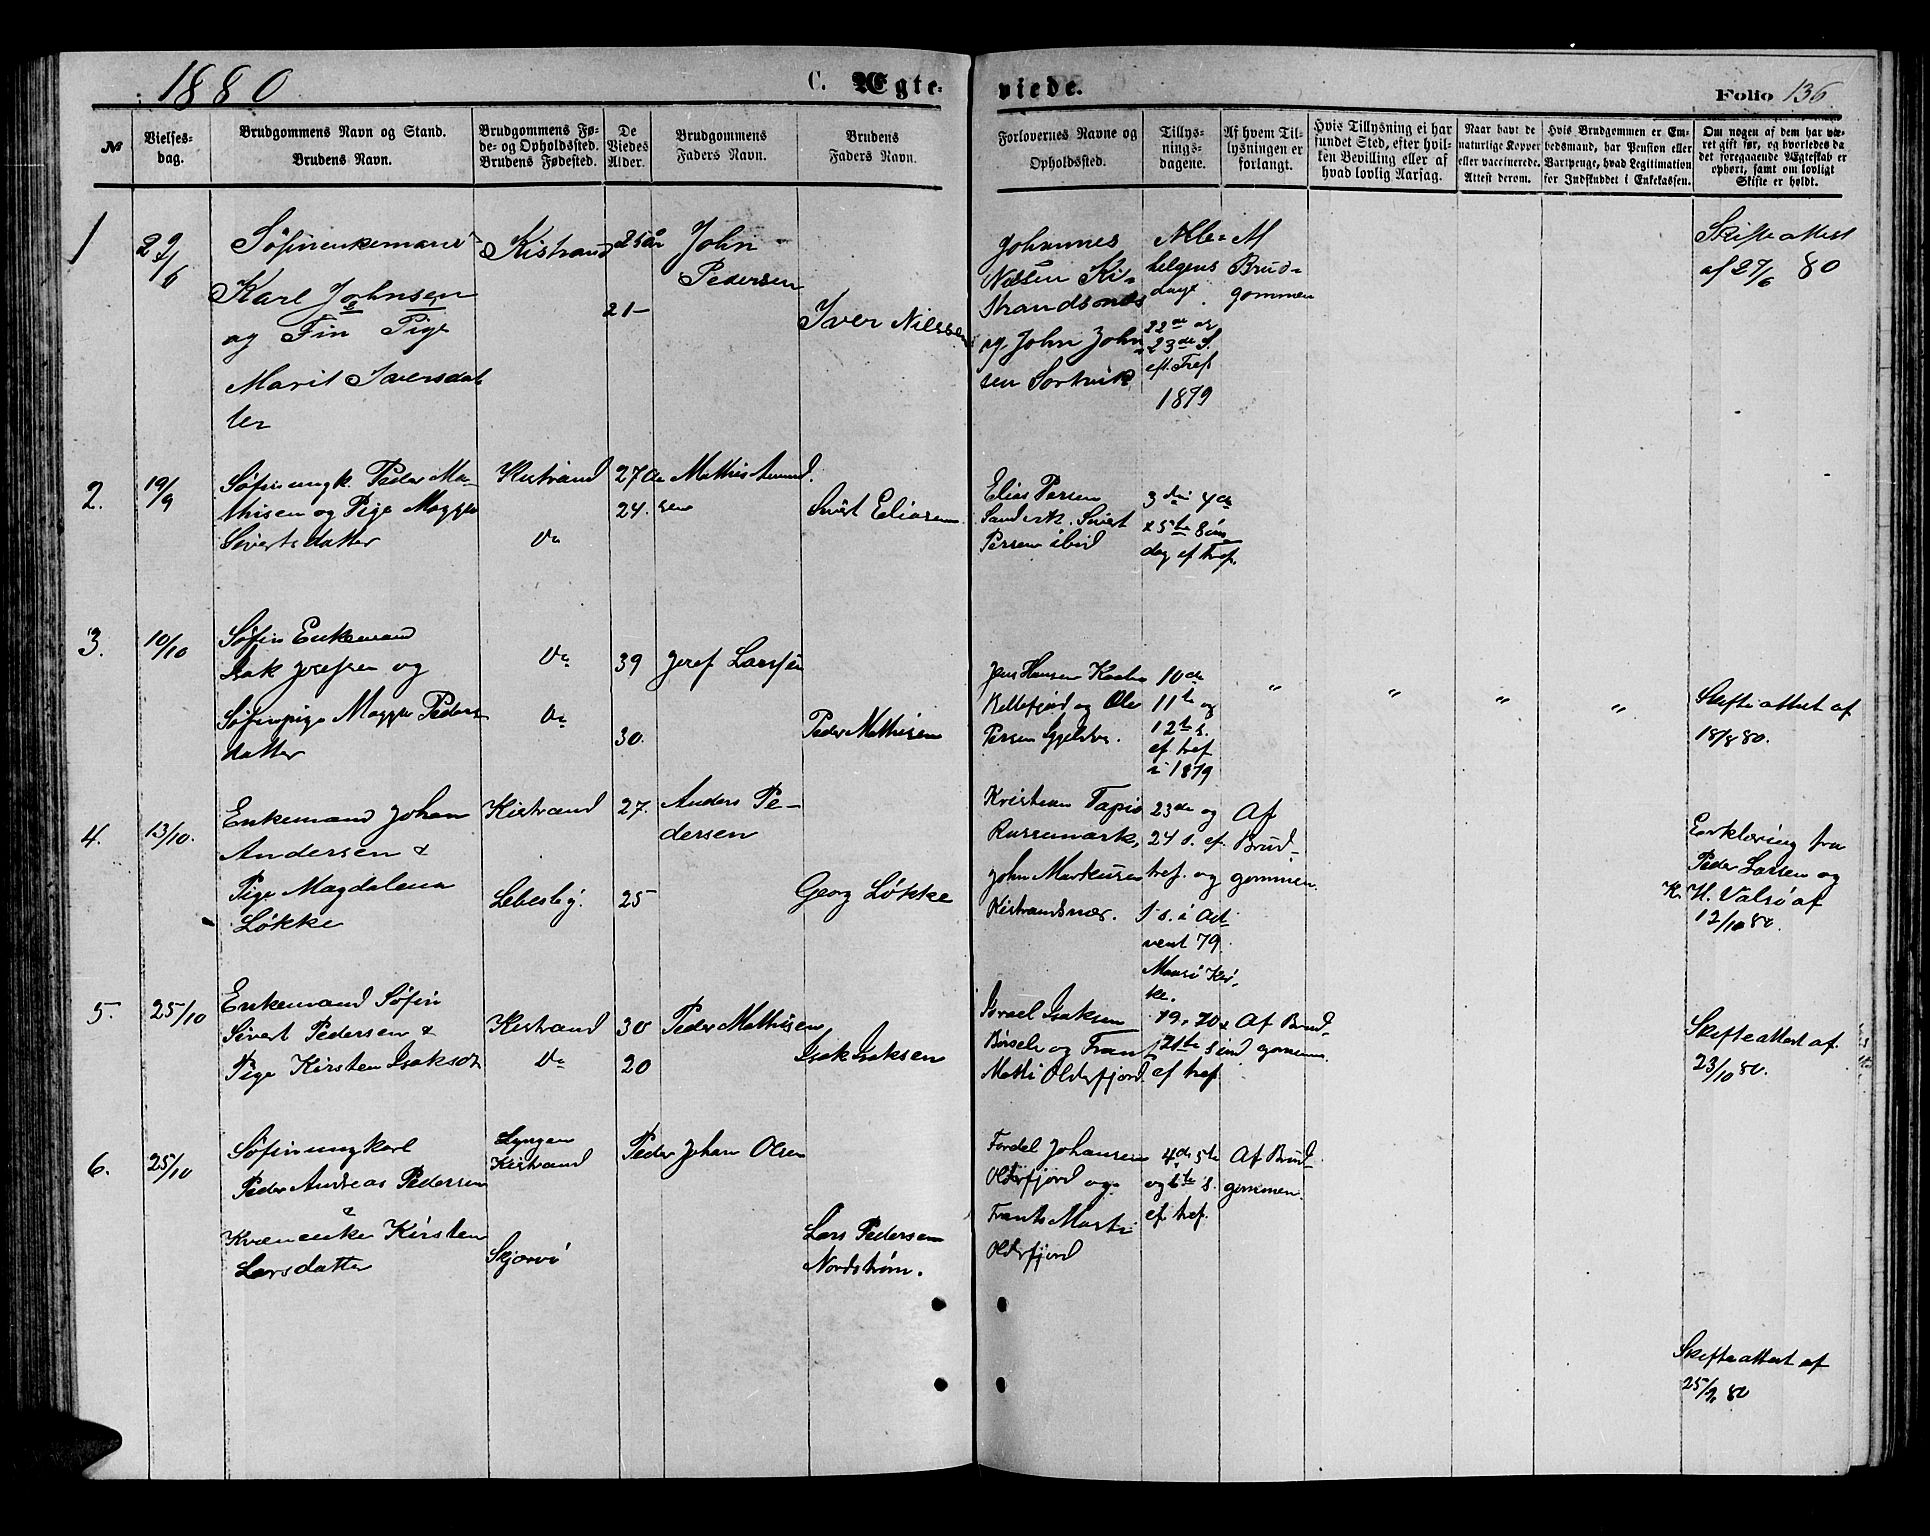 1880
C. Ægte-
viede.
Folio 136
№
Vielses-
dag.
Brudgommens Navn og Stand.
Brudens Navn.
Brudgommens Fø-
de- og Opholdssted.
Brudens Fødested.
De
Viedes
Alder.
Brudgommens
Faders Navn.
Brudens
Faders Navn.
Forlovernes Navne og
Opholdssted.
Tillys-
nings-
dagene.
Af hvem Til-
lysningen er
forlangt.
Hvis Tillysning ei har
fundet Sted, efter hvil-
ken Bevilling eller af
hvad lovlig Aarsag.
Naar havt de
naturlige Kopper
eller vaccinerede.
Attest derom.
Hvis Brudgommen er Em-
bedsmand, har Pension eller
Vartpenge, hvad Legitimation
for Indskuddet i Enkekassen.
Om nogen af dem har væ-
ret gift før, og hvorledes da
det foregaaende Ægteskab er
ophørt, samt om lovligt
Skifte er holdt.
1
Søfinenkemand
Karl Johnsen
og Fin Pige
Marit Iversdat
ter
Kistrand
25 år
21-
John
Pedersen
Iver Nilssen
Johannes
Nilsen Ki-
strandsnæs
og John John
sen Sortvik
Alle-
helgens
dage.
22de og
23de S.
eft. Tref
1879
Af
Brud-
gommen
Skifteattest
af 27/6 80
2.
19/9
Søfinungk. Peder Ma-
thisen og Pige Magga
Siverts datter
Kistrand
Do
27 Aar
24.
Mathis Amund.
sen
Sivert Eliasen
Elias Persen
Sandvik. Sivert
Persen ibid
3die 4de
& 5te Søn
dag ef Tref.
3.
10/10
Søfin Enkemand
Isak Josefsen og
Søfinpige Magga Peders
datter
Do
Do
39
30.
Josef Larssen
Peder Mathisen
Jens Hansen
og Ole
Persen
10de
11te og
12te s.
ef tref
i 1879
"
"
"
"
Skifteattest af
18/8 80.
4.
13/10.
Enkemand Johan
Andersen &
Pige Magdalena
Løkke
Kistrand
Lebesby.
27.
25
Anders Pe-
dersen
Georg Løkke
Kristian Tapio
Russemark,
John Markusen
Kistrandsnær.
23de og
24 s. ef.
tref. og
1 s. i Ad-
vent 79.
Maasø Kir-
ke.
Af
Brud-
gommen.
Erklæring fra
Peder Larsen og
K. H. Valsø af
12/10 80.
5.
25/10
Enkemand Søfin
Sivert Pedersen &
Pige Kirsten Isaksdt
Kistrand
Do
30
20
Peder Mathisen
Isak Isaksen
Israel Isaksen
Børselv og Frants
Matti Olderfjord.
19, 20 &
21te sønd
ef tref.
Af Brud-
gommen.
Skifteattest af.
23/10 80.
6.
25/10
Søfinungkarl
Peder Andreas Pedersen
&
Kvænenke Kirsten
Larsdatter
Lyngen
Kistrand
Skjervø
Peder Johan Olsen
Lars Pedersen
Nordstrøm.
Fordel Johansen
Olderfjord og
Frants Matti
Olderfjord
4de 5te
og 6te s.
ef tref.
Af Brud-
gommen.
Skifteattest af
25/9 80